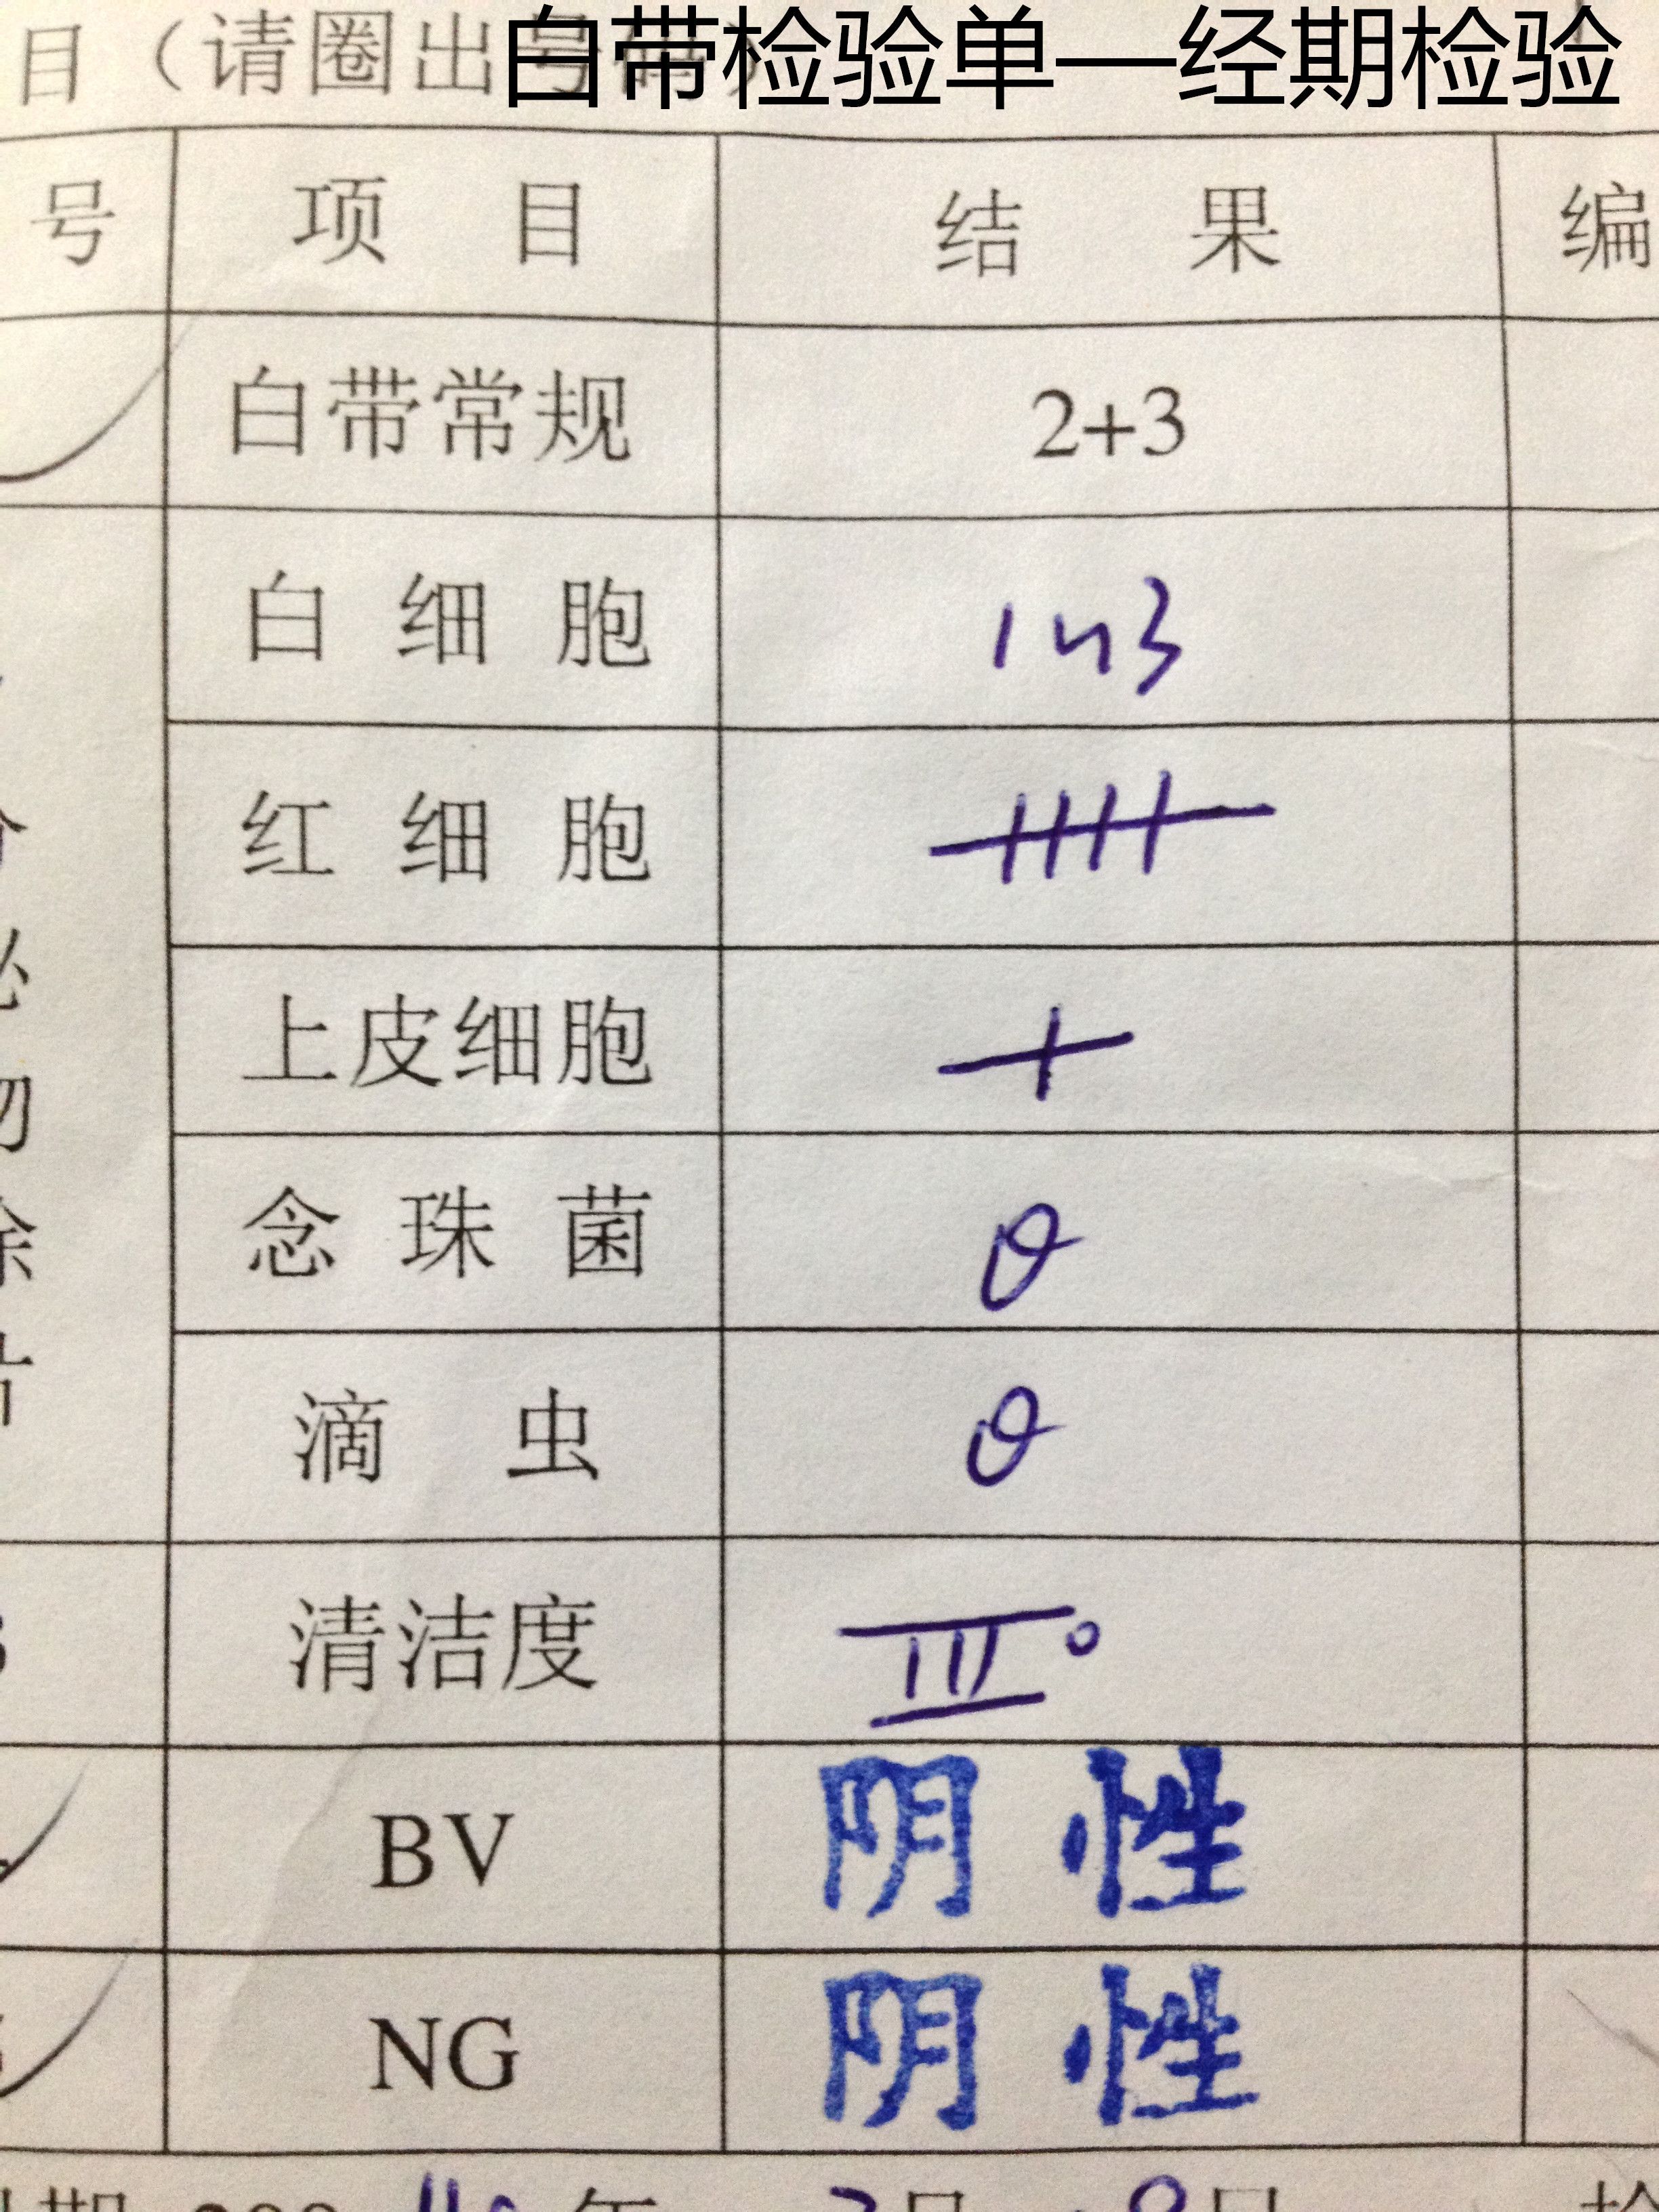 目（请圈出号码）
白带检验单—经期检验
号 项 目 结 果 编
白带常规 2+3
白 细 胞 1~3
红 细 胞 ++++
上皮细胞 +
念 珠 菌 θ
滴 虫 θ
清洁度 III°
BV 阴 性
NG 阴 性